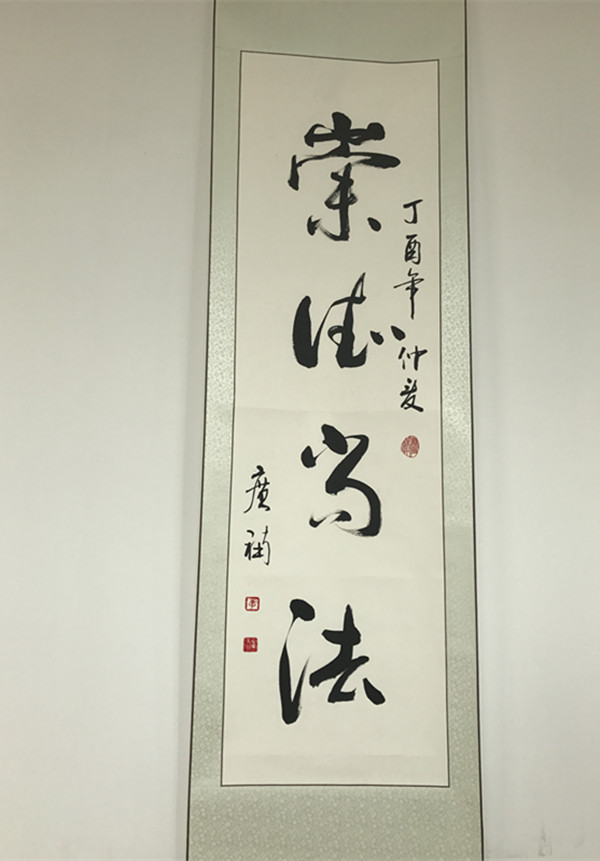 崇德尚法
丁酉年仲夏
广補